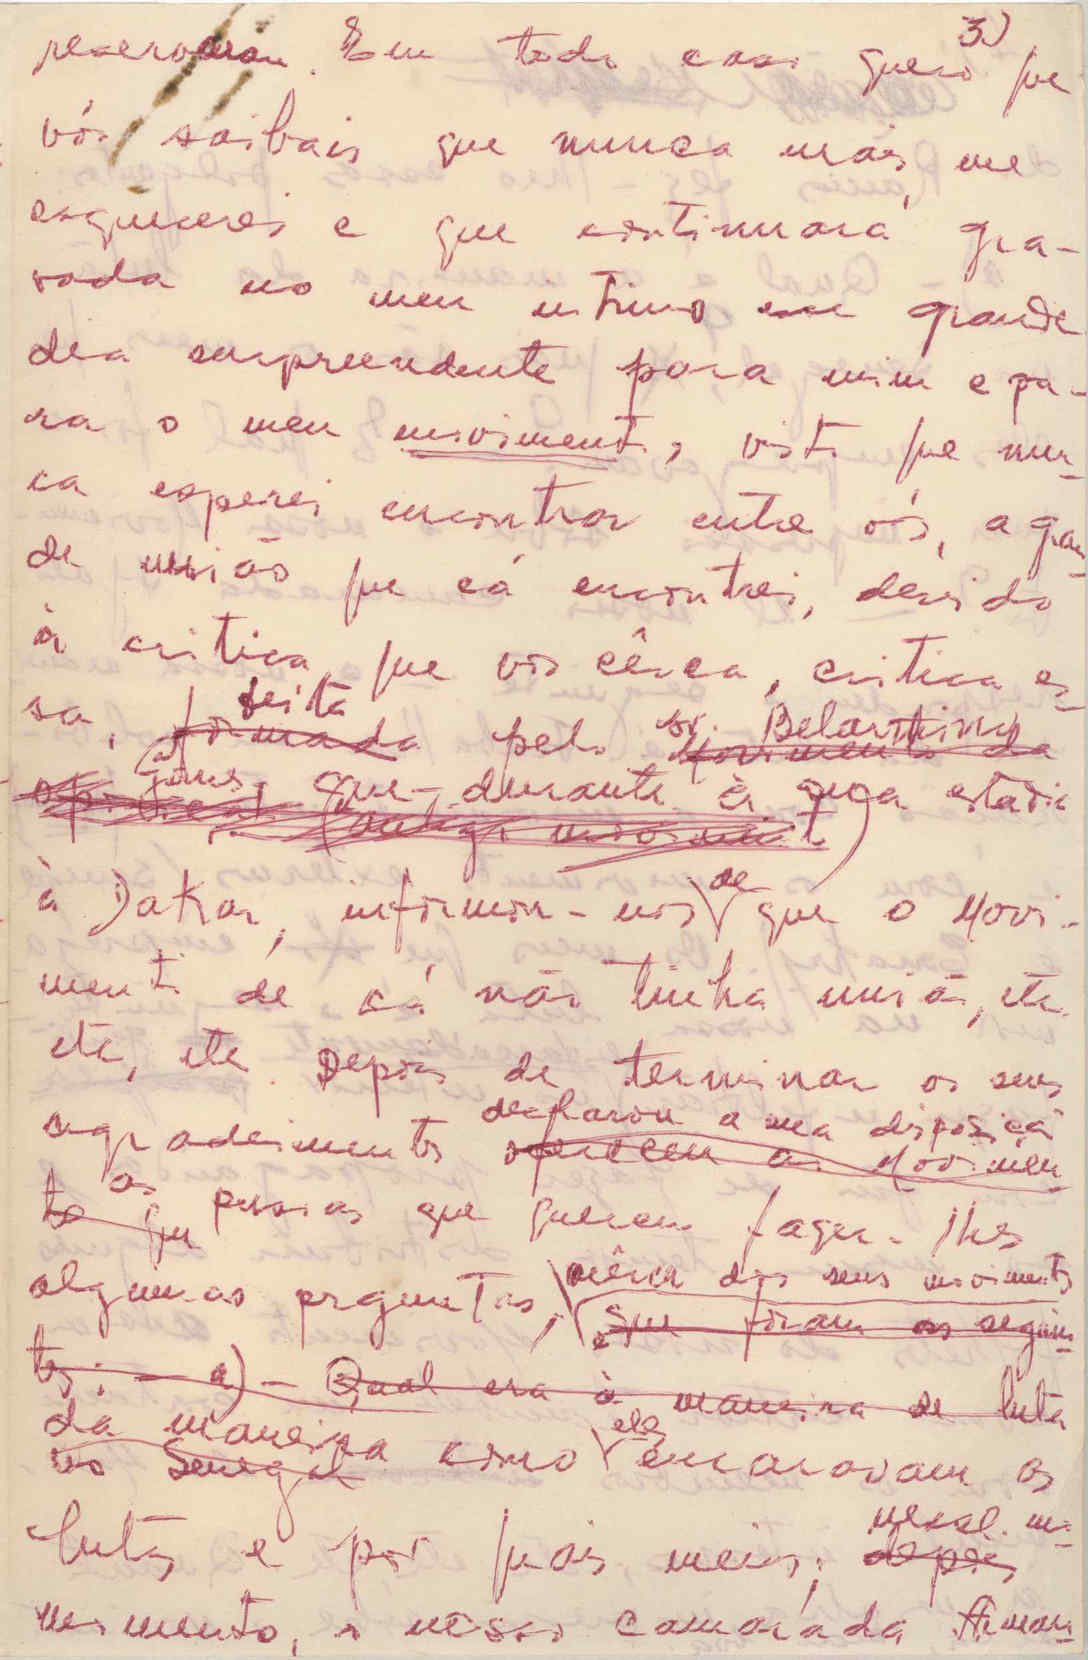 3)
reservaram. Em todo caso quero que
vós saibais que nunca mais me
esquecerei e que continuará gra-
vada no meu intimo esse grande
dia surpreendente para mim e pa-
ra o meu movimento, visto que nun-
ca esperei encontrar entre vós, a gran-
de união que cá encontrei, devido
à critica que vos cêrca, critica es-
sa, formada feita pelo Movimento da sr. Belarmino
Gomes, que durante à sua estadia
à Dakar, informou-nos de que o Movi-
mento de cá não tinha união, etc.
etc, etc. Depois de terminar os seus
agradecimentos ofereceu ao Movimen- declarou a sua disposição
to que as pessoas que querem fazer-lhes
algumas preguntas, àcêrca dos seus movimentos
que foram as seguin-
tes: - a) - Qual era à maneira de luta
no Senegal da maneira como eles encaravam as
lutas e por quais meios; depois nesse mo-
vimento, o nosso camarada Arman-